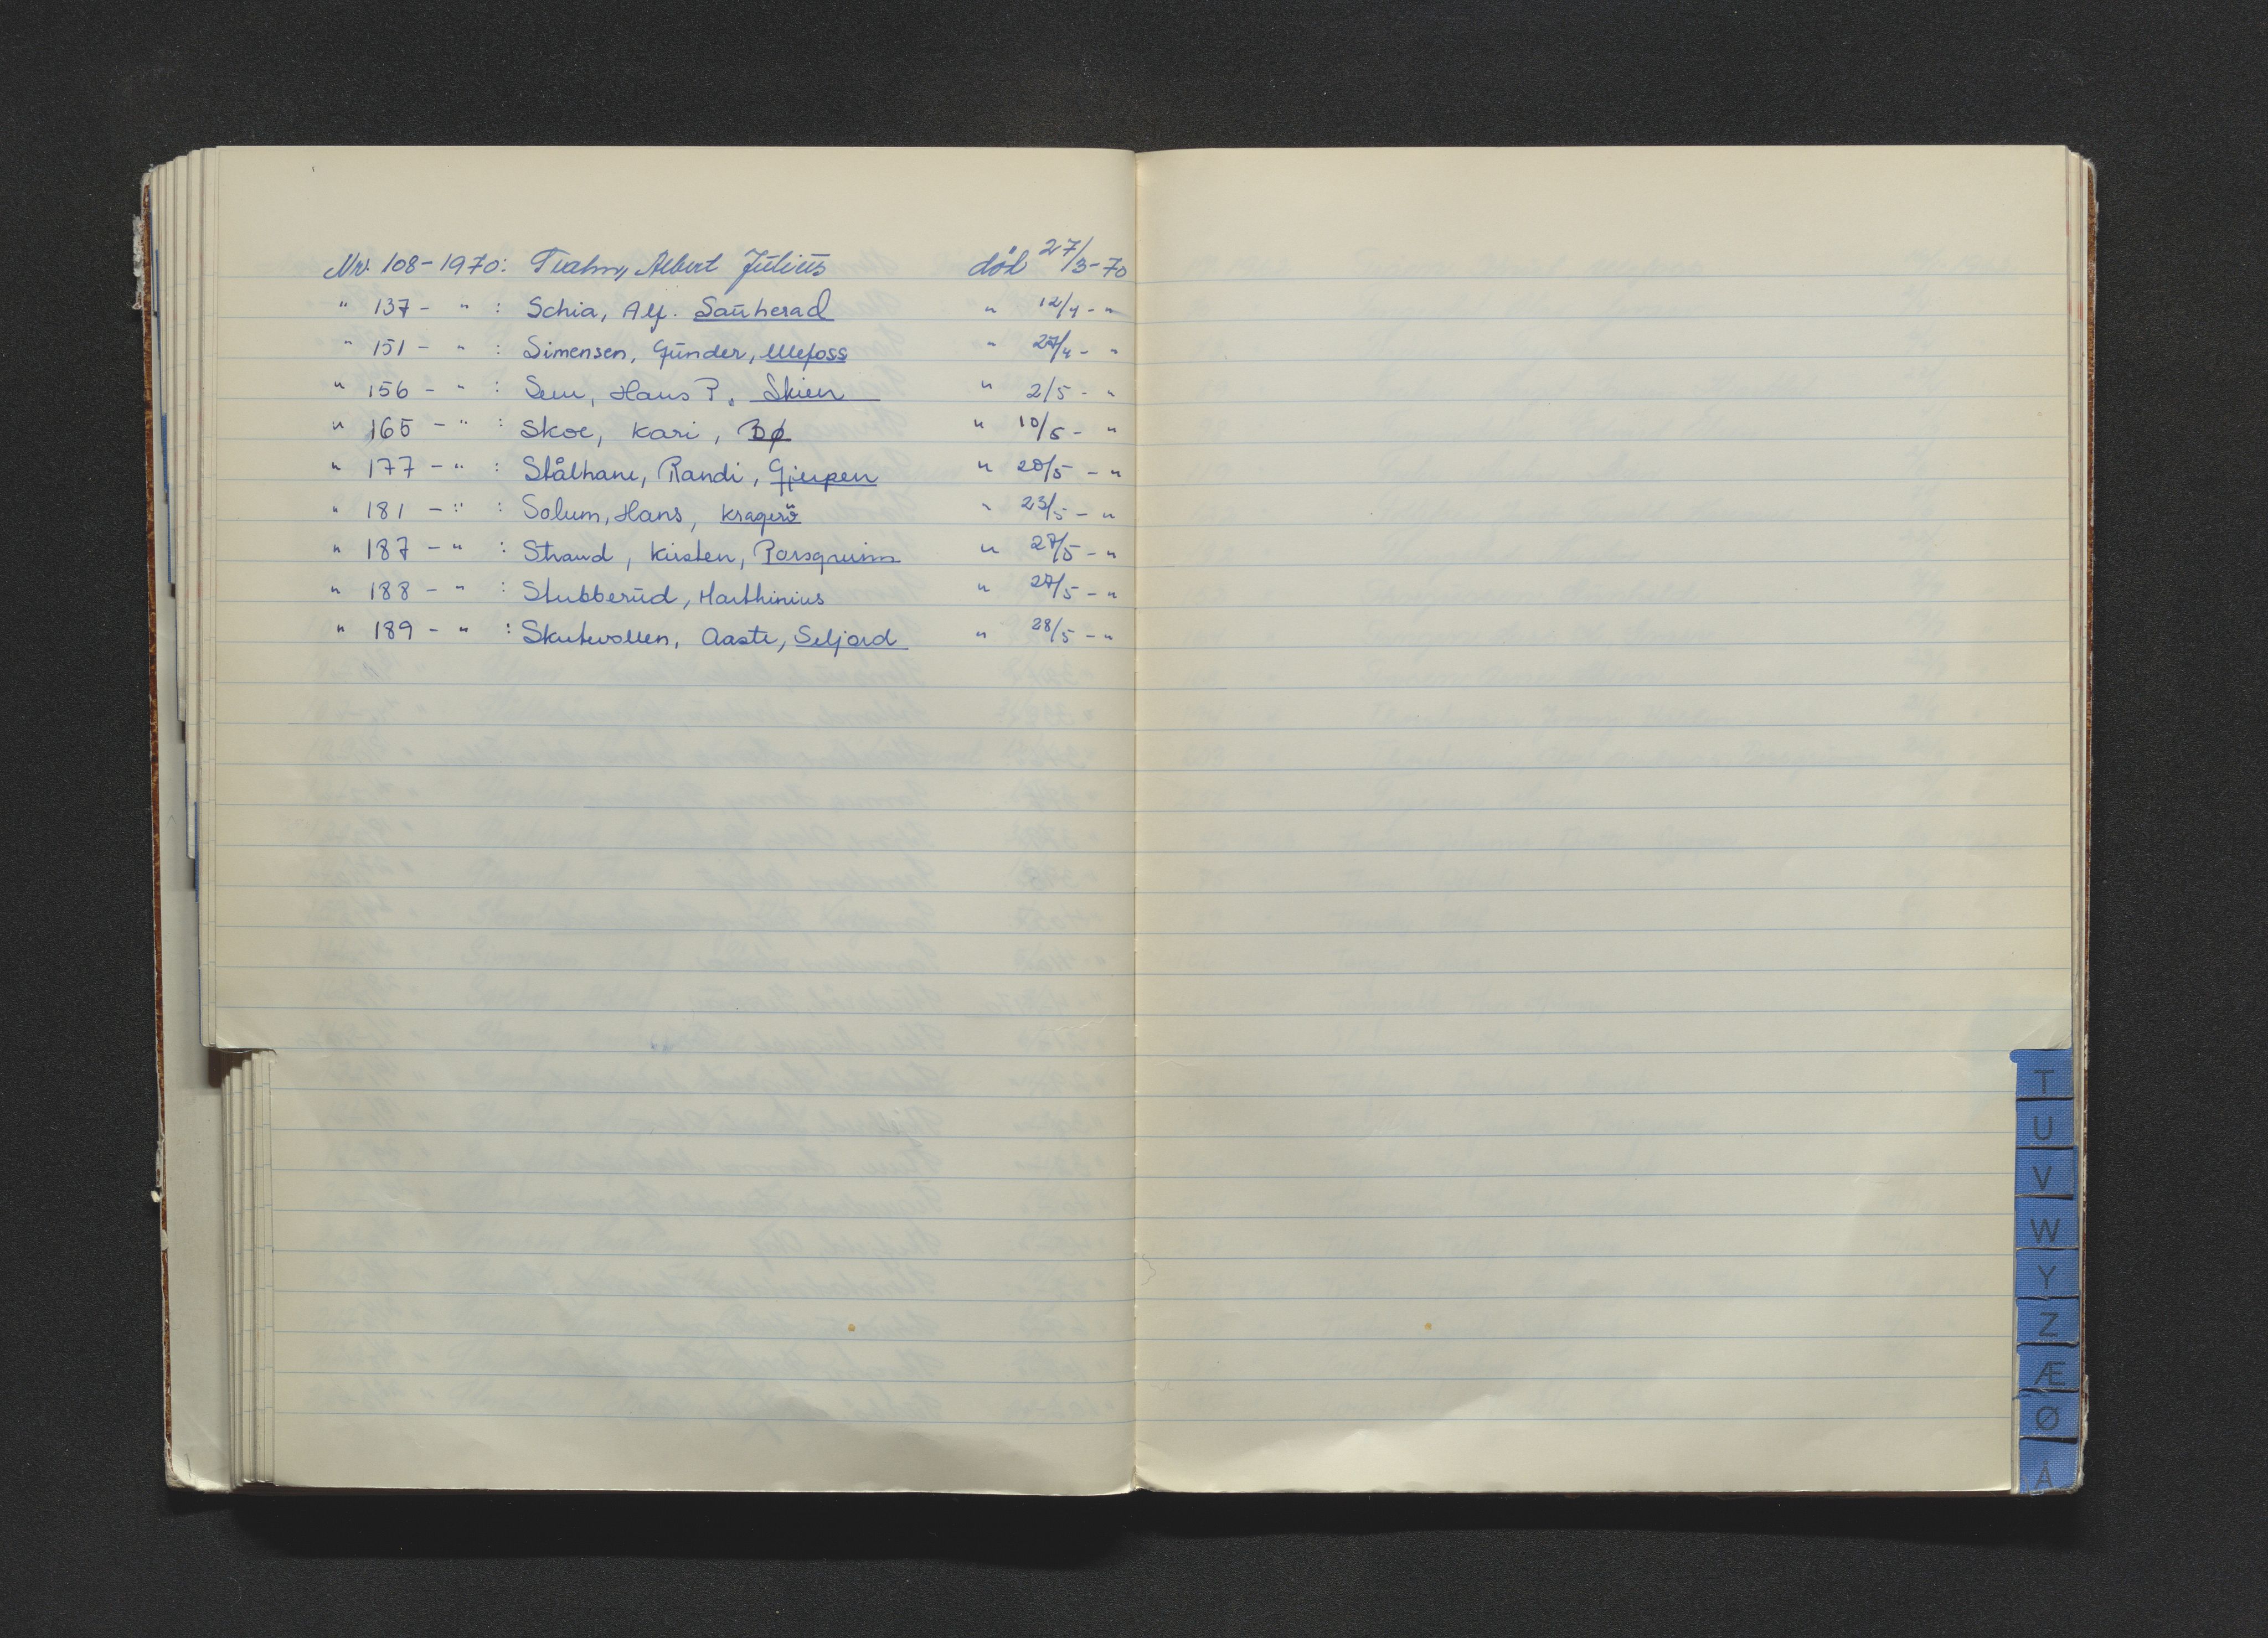 Nr. 108-1970: Albert Julius död 27/3-70
" 137 - " : Schia, Alf. Sauherad " 12/4 - "
" 151 - " : Simensen, Gunder, Ulefoss " 27/4 - "
" 156 - " : Sem, Hans P. Skien " 2/5 - "
" 165 - " : Skoe, Kari, Bø " 10/5 - "
" 177 - " : Stålhane, Randi, Gjerpen " 20/5 - "
" 181 - " : Solum, Hans, Kragerö " 23/5 - "
" 187 - " : Strand, Kirsten, Porsgrunn " 27/5 - "
" 188 - " : Stubberud, Marthinius " 27/5 - "
" 189 - " : Skutevollen, Aaste, Seljord " 28/5 - "
T
U
V
W
Y
Z
Æ
Ø
Å